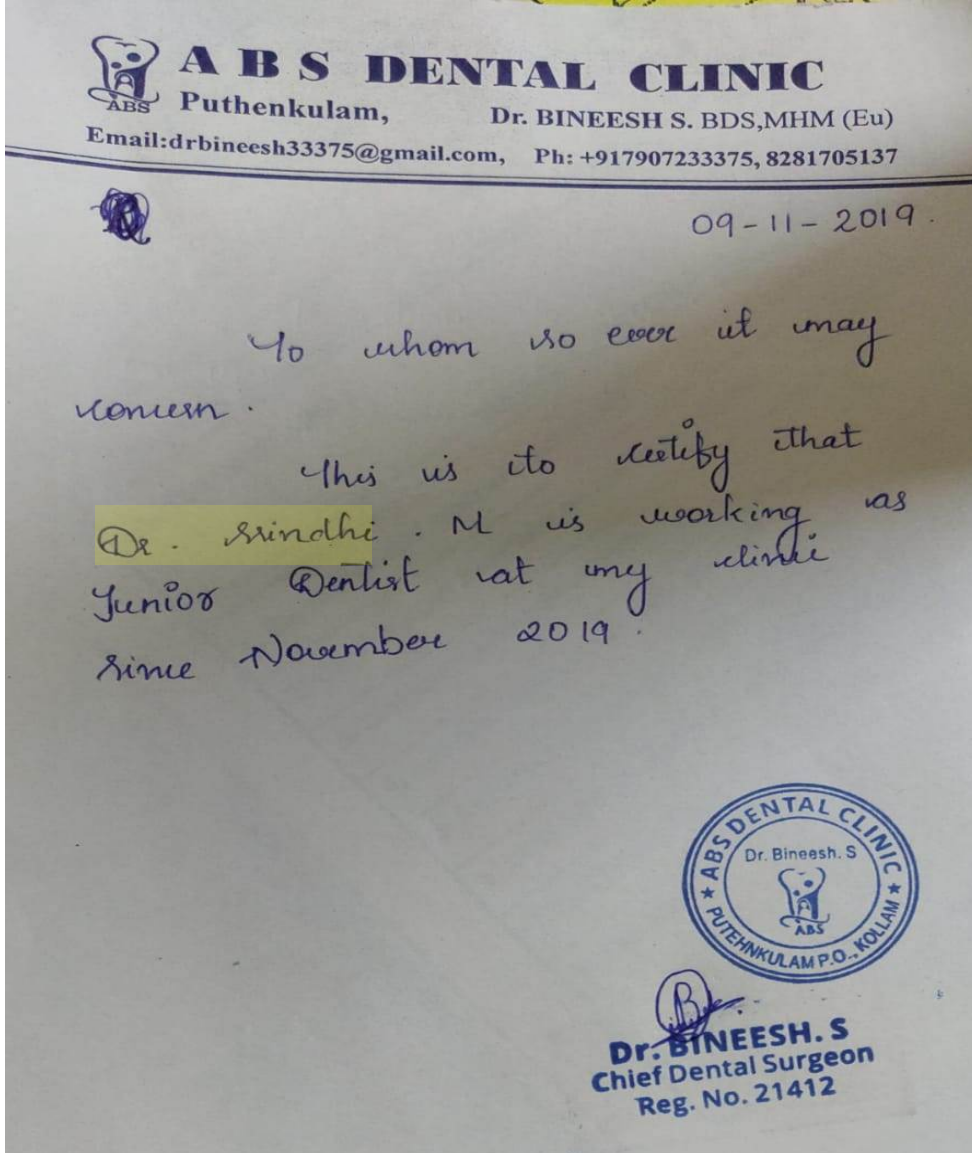 A B S DENTAL CLINIC
ABS
Puthenkulam, Dr. BINEESH S. BDS,MHM (Eu)
Email:drbineesh33375@gmail.com, Ph: +917907233375, 8281705137
09-11-2019.
To whom so ever it may
concern.
This is to certify that
Dr. Srindhi. M is working as
Junior Dentist at my clinic
since November 2019.
★ ABS DENTAL CLINIC ★
Dr. Bineesh. S
ABS
PUTEHNKULAM P.O., KOLLAM
Dr. BINEESH. S
Chief Dental Surgeon
Reg. No. 21412